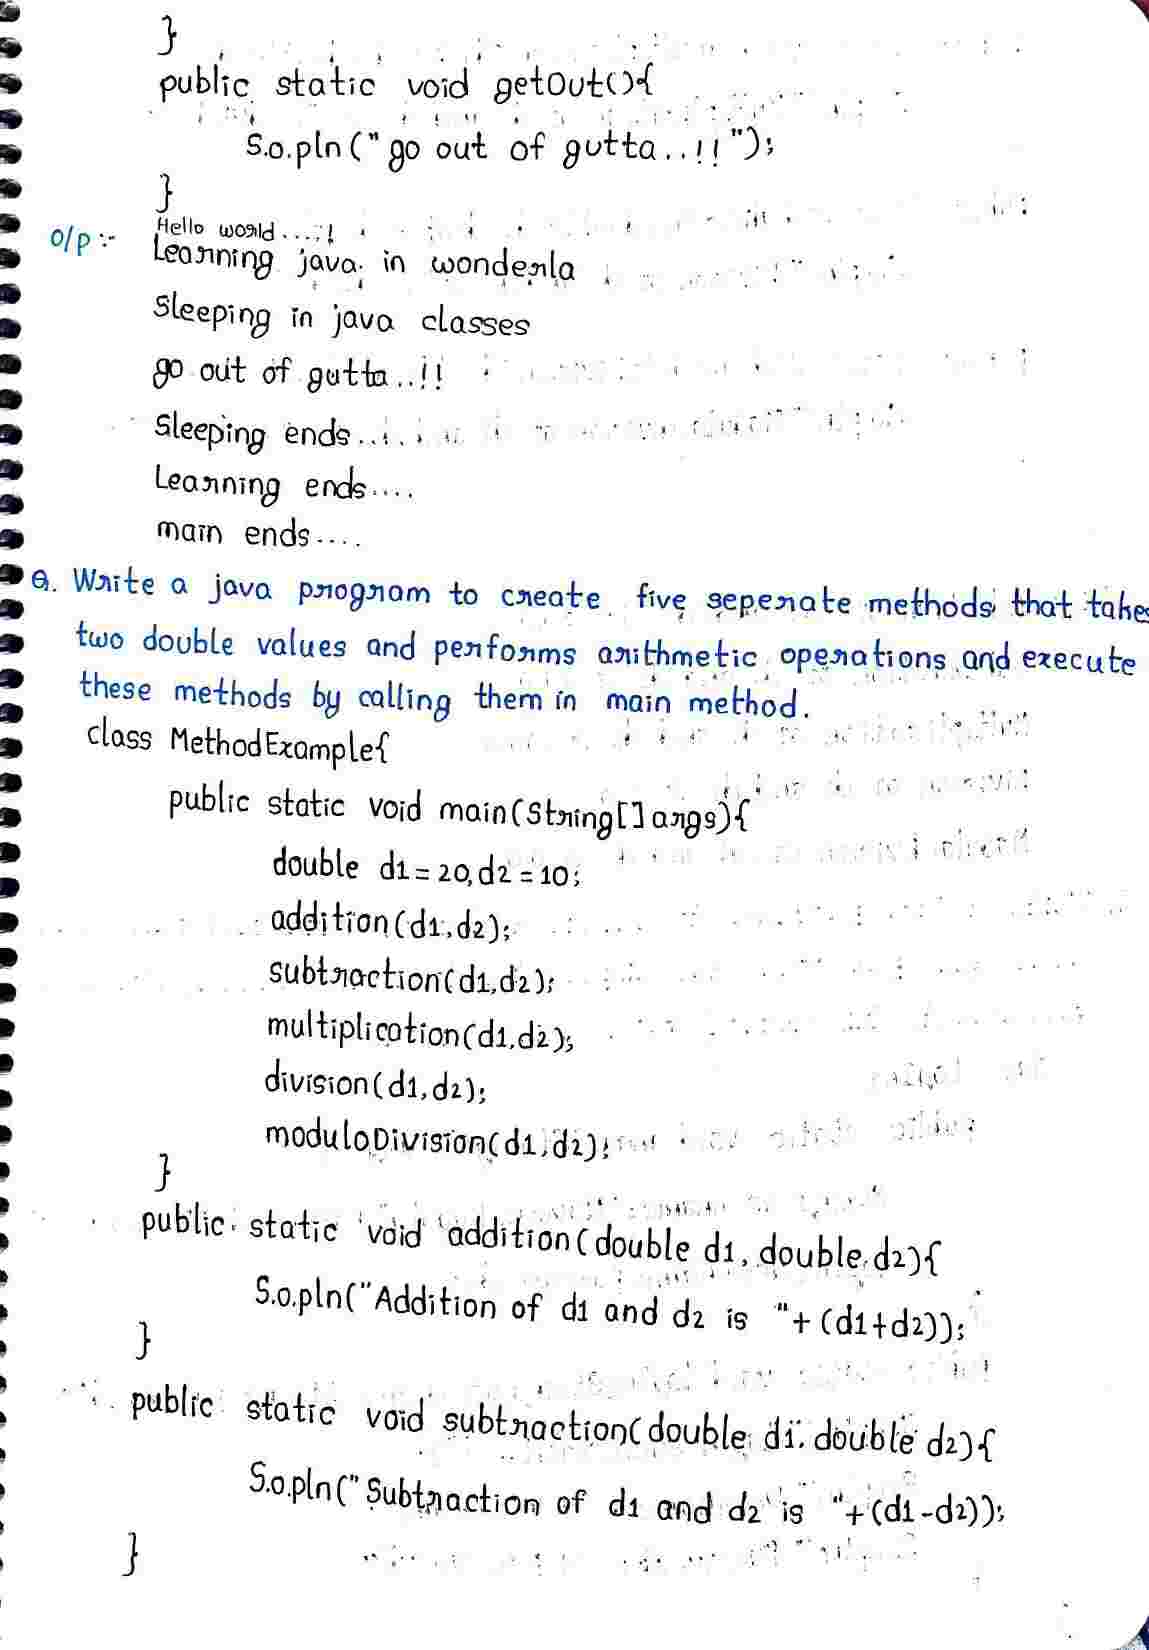 }
public static void getOut(){
S.o.pln(" go out of gutta..!!");
}
O/P :- Hello world.....!
Learning java in wonderla
Sleeping in java classes
go out of gutta..!!
Sleeping ends....
Learning ends....
main ends....
Q. Write a java program to create five seperate methods that takes
two double values and performs arithmetic operations and execute
these methods by calling them in main method.
class MethodExample{
public static void main(String[] args){
double d1=20,d2=10;
addition(d1,d2);
subtraction(d1,d2);
multiplication(d1,d2);
division(d1,d2);
moduloDivision(d1,d2);
}
public static void addition(double d1, double d2){
S.o.pln("Addition of d1 and d2 is "+(d1+d2));
}
public static void subtraction(double d1, double d2){
S.o.pln("Subtraction of d1 and d2 is "+(d1-d2));
}